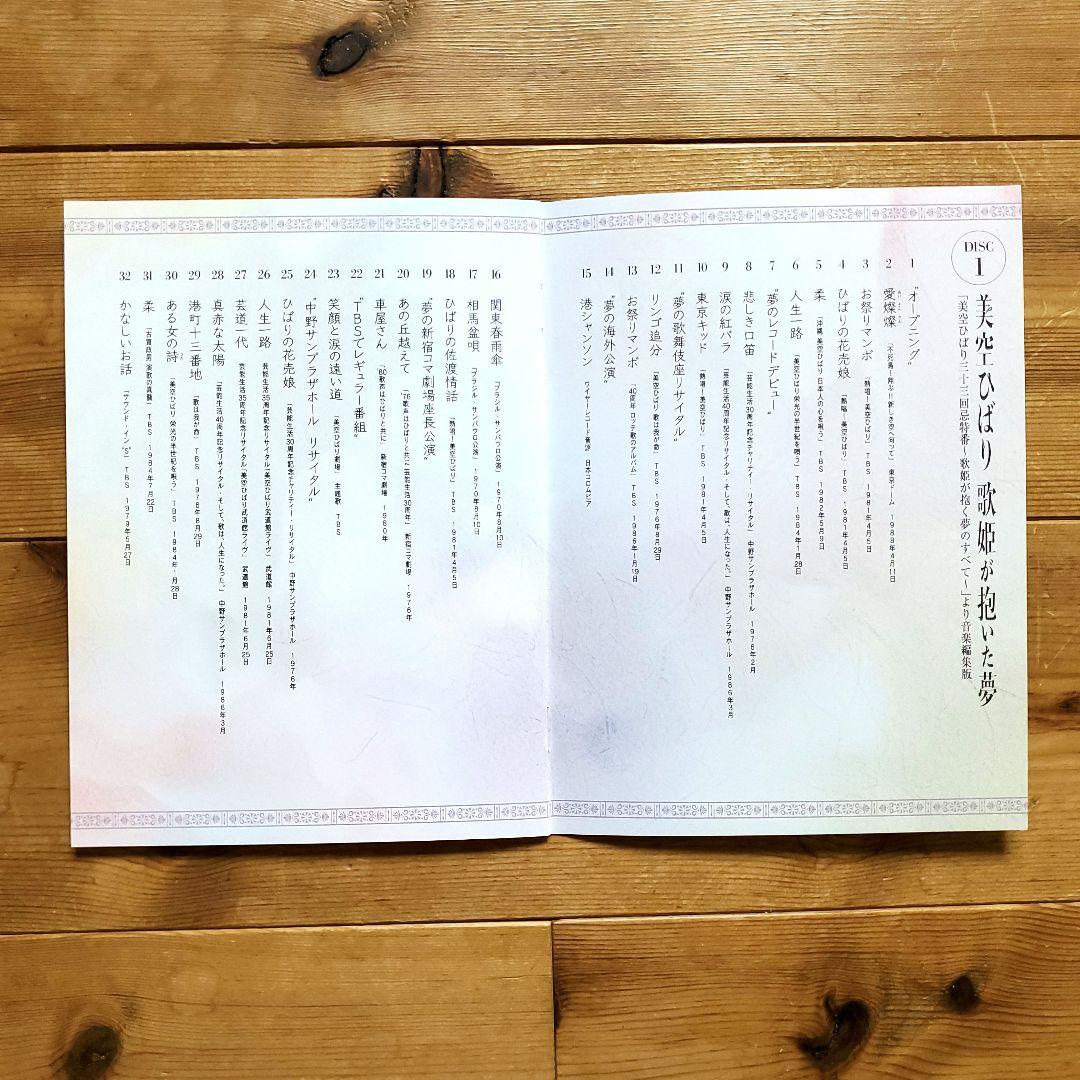 DISC 1
美空ひばり 歌姫が抱いた夢
「美空ひばり三十三回忌特番～歌姫が抱く夢のすべて～」より音楽編集版
1 “オープニング”
2 愛燦燦 「不死鳥！翔ぶ!!新しき空へ向って」 東京ドーム 1988年4月11日
3 お祭りマンボ 「熱唱！美空ひばり」 TBS 1981年4月5日
4 ひばりの花売娘 「熱唱！美空ひばり」 TBS 1981年4月5日
5 柔 「沖縄 美空ひばり 日本人の心を唄う」 TBS 1982年5月9日
6 人生一路 「美空ひばり栄光の半世紀を唄う」 TBS 1984年1月28日
7 “夢のレコードデビュー”
8 悲しき口笛 「芸能生活30周年記念チャリティー・リサイタル」 中野サンプラザホール 1976年2月
9 涙の紅バラ 「芸能生活40周年記念リサイタル・そして、歌は、人生になった。」 中野サンプラザホール 1986年3月
10 東京キッド 「熱唱！美空ひばり」 TBS 1981年4月5日
11 “夢の歌舞伎座リサイタル”
12 リンゴ追分 「美空ひばり 歌は我が命」 TBS 1976年8月29日
13 お祭りマンボ 「40周年 ロッテ歌のアルバム」 TBS 1986年1月19日
14 “夢の海外公演”
15 港シャンソン ワイヤーレコード音源 日本コロムビア
16 関東春雨傘 「ブラジル・サンパウロ公演」 1970年8月10日
17 相馬盆唄 「ブラジル・サンパウロ公演」 1970年8月10日
18 ひばりの佐渡情話 「熱唱！美空ひばり」 TBS 1981年4月5日
19 “夢の新宿コマ劇場座長公演”
20 あの丘越えて 「'76歌声はひばりと共に 芸能生活30周年」 新宿コマ劇場 1976年
21 車屋さん 「'80歌声はひばりと共に」 新宿コマ劇場 1980年
22 “TBSでレギュラー番組”
23 笑顔と涙の遠い道 「美空ひばり劇場」 主題歌 TBS
24 “中野サンプラザホール リサイタル”
25 ひばりの花売娘 「芸能生活30周年記念チャリティー・リサイタル」 中野サンプラザホール 1976年
26 人生一路 芸能生活35周年記念リサイタル「美空ひばり武道館ライヴ」 武道館 1981年6月25日
27 芸道一代 芸能生活35周年記念リサイタル「美空ひばり武道館ライヴ」 武道館 1981年6月25日
28 真赤な太陽 「芸能生活40周年記念リサイタル・そして、歌は、人生になった。」 中野サンプラザホール 1986年3月
29 港町十三番地 「歌は我が命」 TBS 1976年8月29日
30 ある女の詩 「美空ひばり 栄光の半世紀を唄う」 TBS 1984年1月28日
31 柔 「古賀政男 演歌の真髄」 TBS 1984年7月22日
32 かなしいお話 「サウンド・イン“S”」 TBS 1979年5月27日